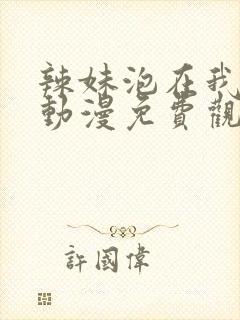 辣妹泡在我
動漫免費觀
許國偉